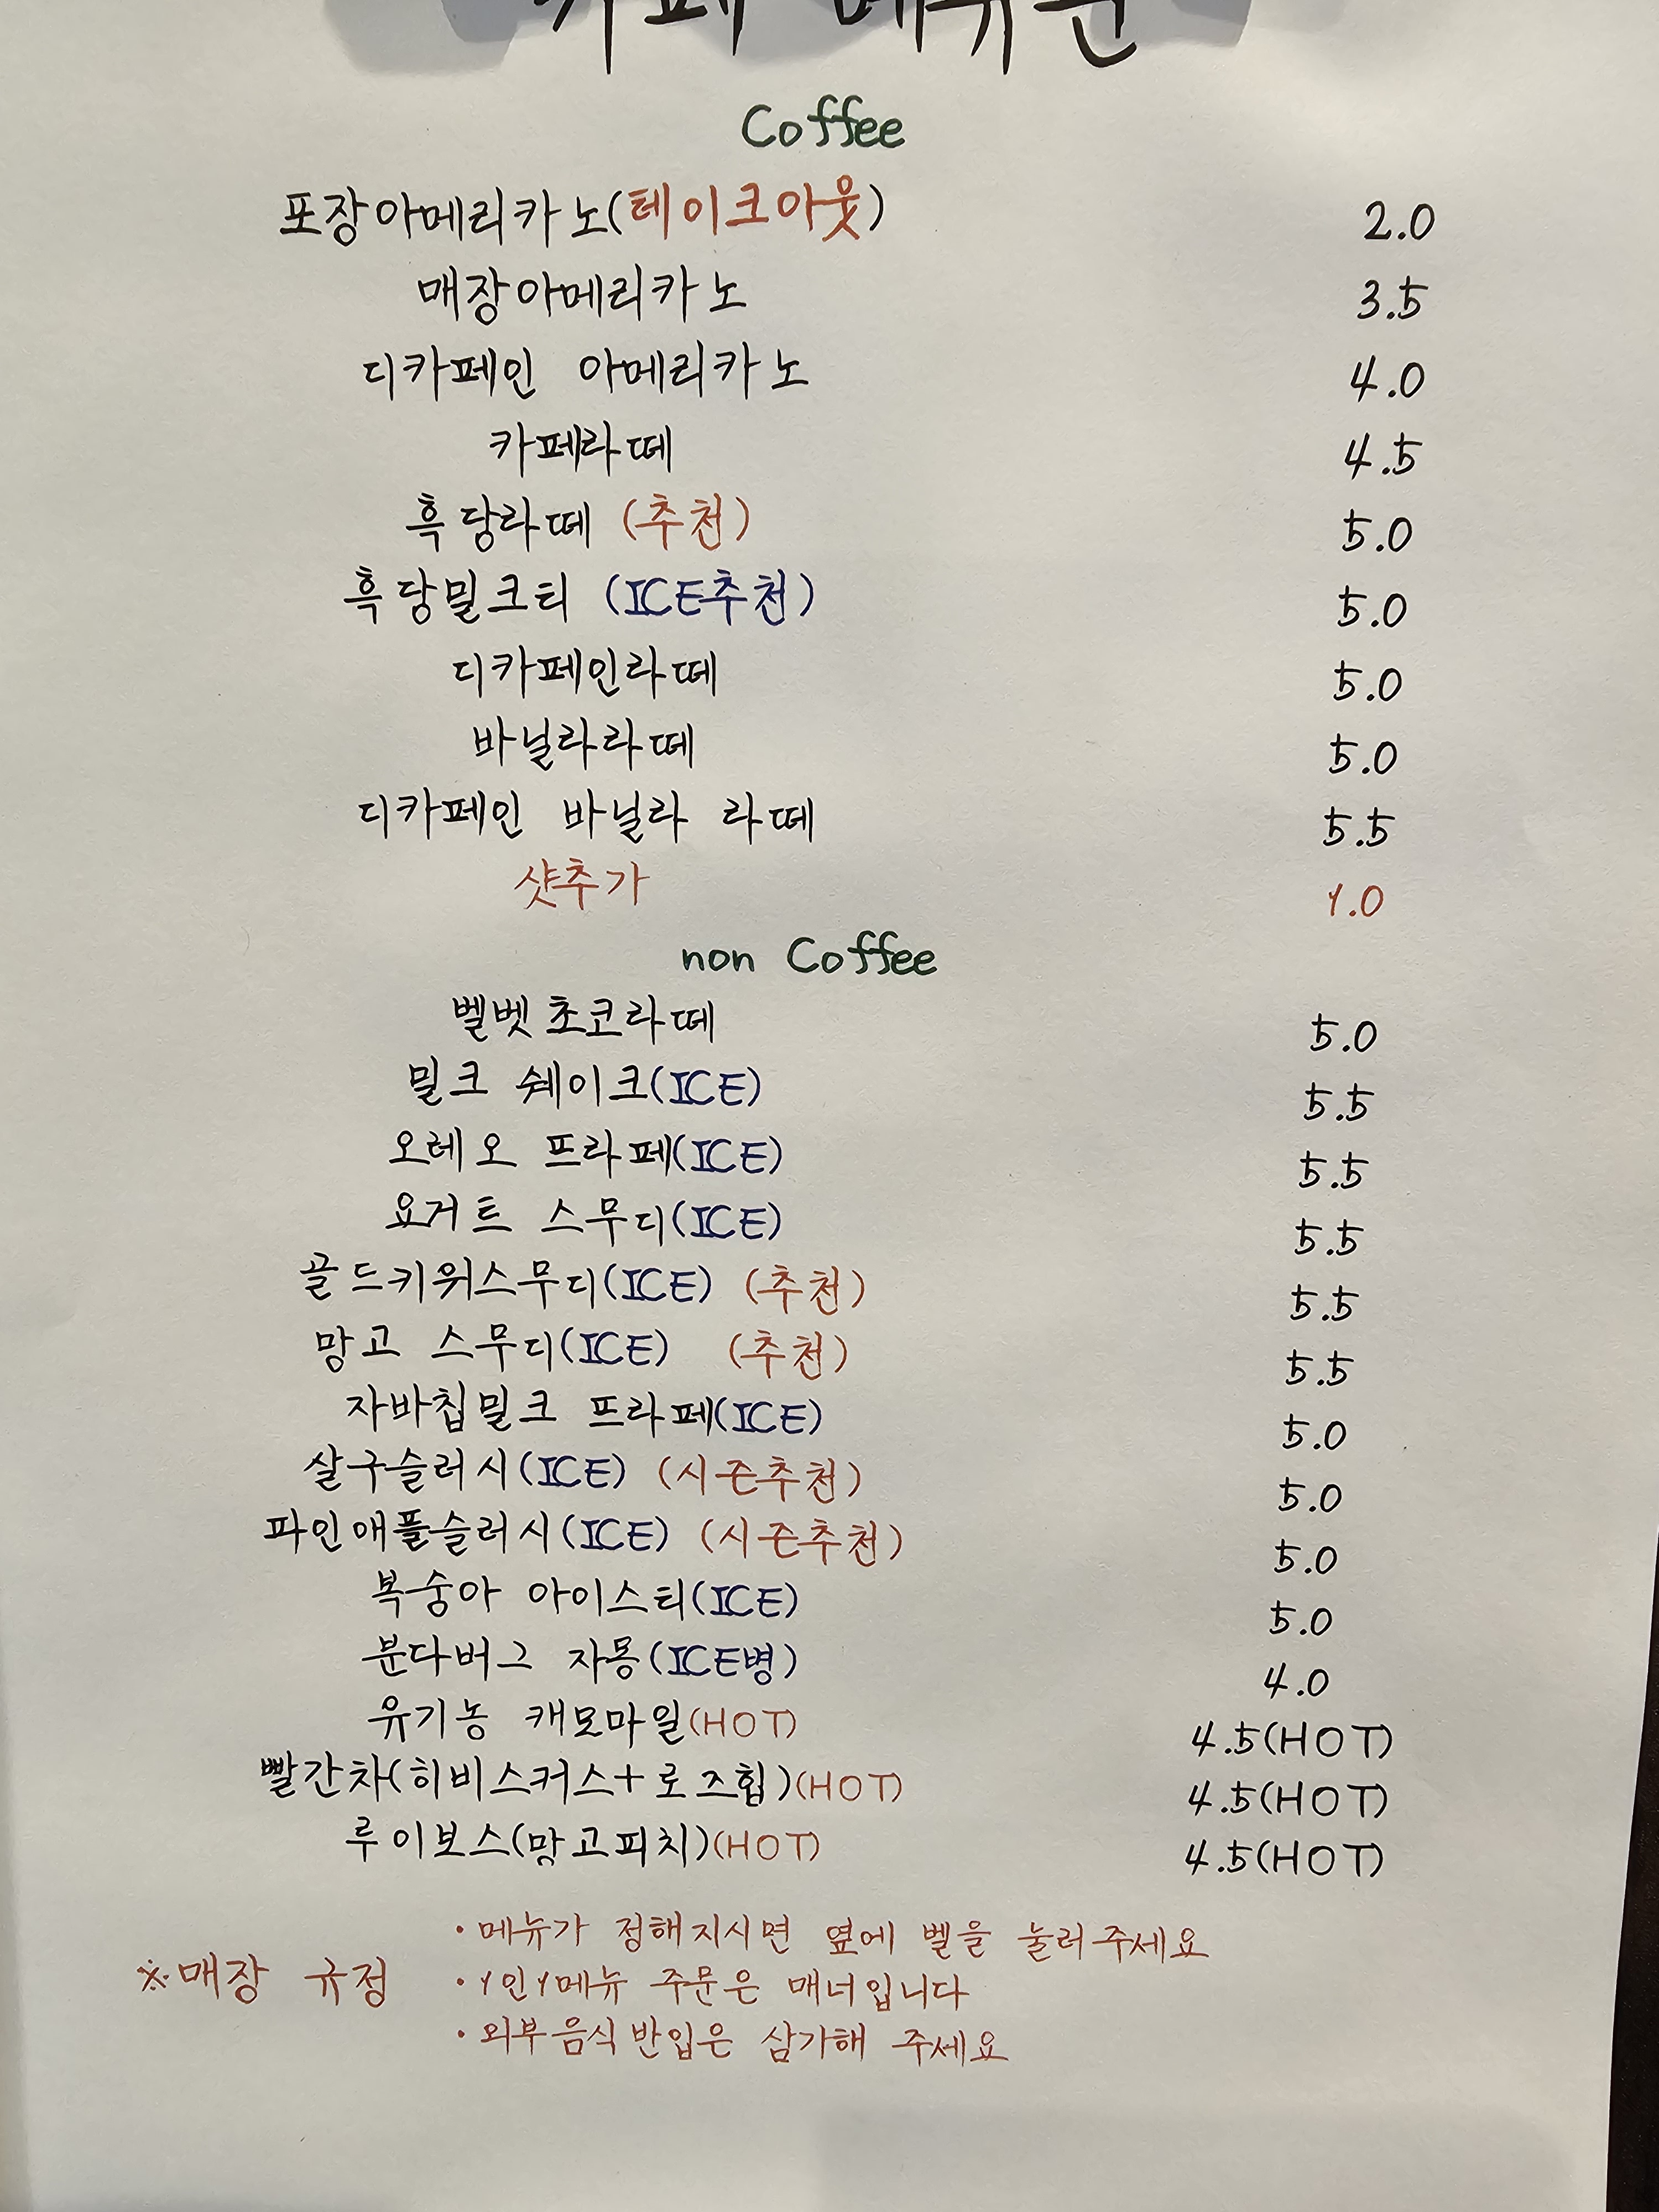 카페 메뉴판
Coffee
포장아메리카노(테이크아웃) 2.0
매장아메리카노 3.5
디카페인 아메리카노 4.0
카페라떼 4.5
흑당라떼 (추천) 5.0
흑당밀크티 (ICE추천) 5.0
디카페인라떼 5.0
바닐라라떼 5.0
디카페인 바닐라 라떼 5.5
샷추가 1.0
non Coffee
벨벳초코라떼 5.0
밀크 쉐이크(ICE) 5.5
오레오 프라페(ICE) 5.5
요거트 스무디(ICE) 5.5
골드키위스무디(ICE) (추천) 5.5
망고 스무디(ICE) (추천) 5.5
자바칩밀크 프라페(ICE) 5.0
살구슬러시(ICE) (시즌추천) 5.0
파인애플슬러시(ICE) (시즌추천) 5.0
복숭아 아이스티(ICE) 5.0
분다버그 자몽(ICE병) 4.0
유기농 캐모마일(HOT) 4.5(HOT)
빨간차(히비스커스+로즈힙)(HOT) 4.5(HOT)
루이보스(망고피치)(HOT) 4.5(HOT)
※매장 규정
·메뉴가 정해지시면 옆에 벨을 눌러주세요
·1인1메뉴 주문은 매너입니다
·외부음식반입은 삼가해 주세요